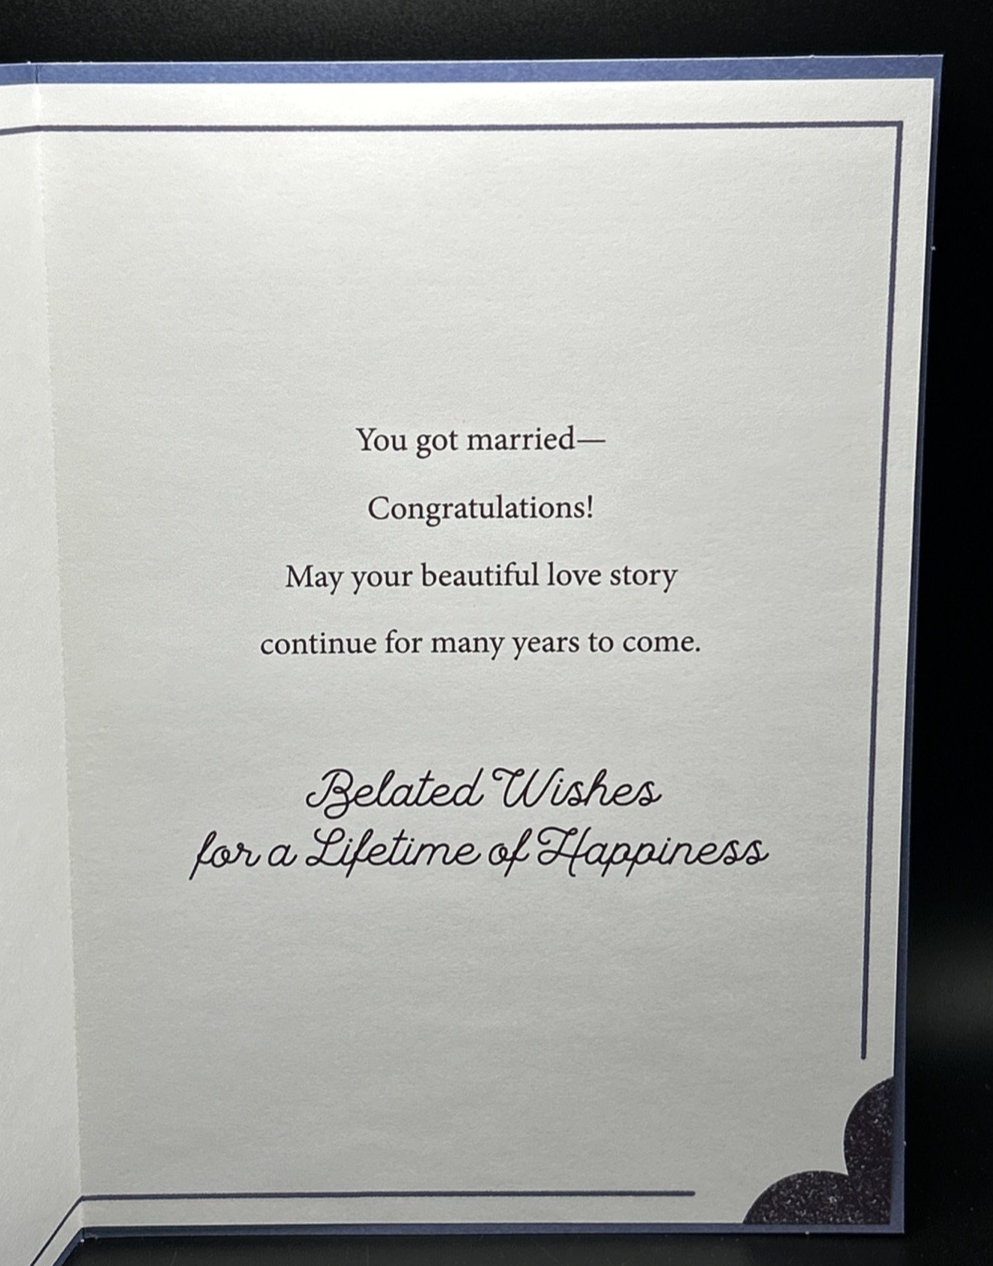 You got married—
Congratulations!
May your beautiful love story
continue for many years to come.
Belated Wishes
for a Lifetime of Happiness